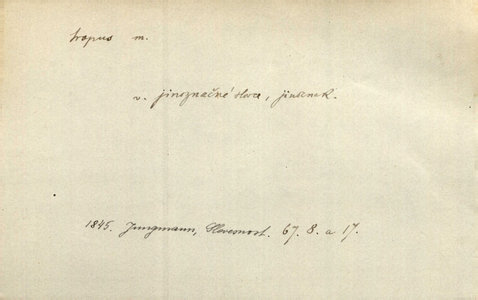 tropus m.
v. jinoznačné slova, jinznak.
1845. Jungmann, Slovesnost. 67. 8. a 17.